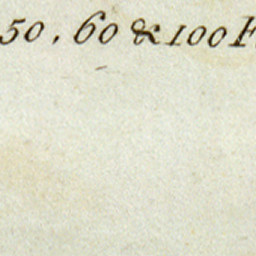 50, 60 & 100 F